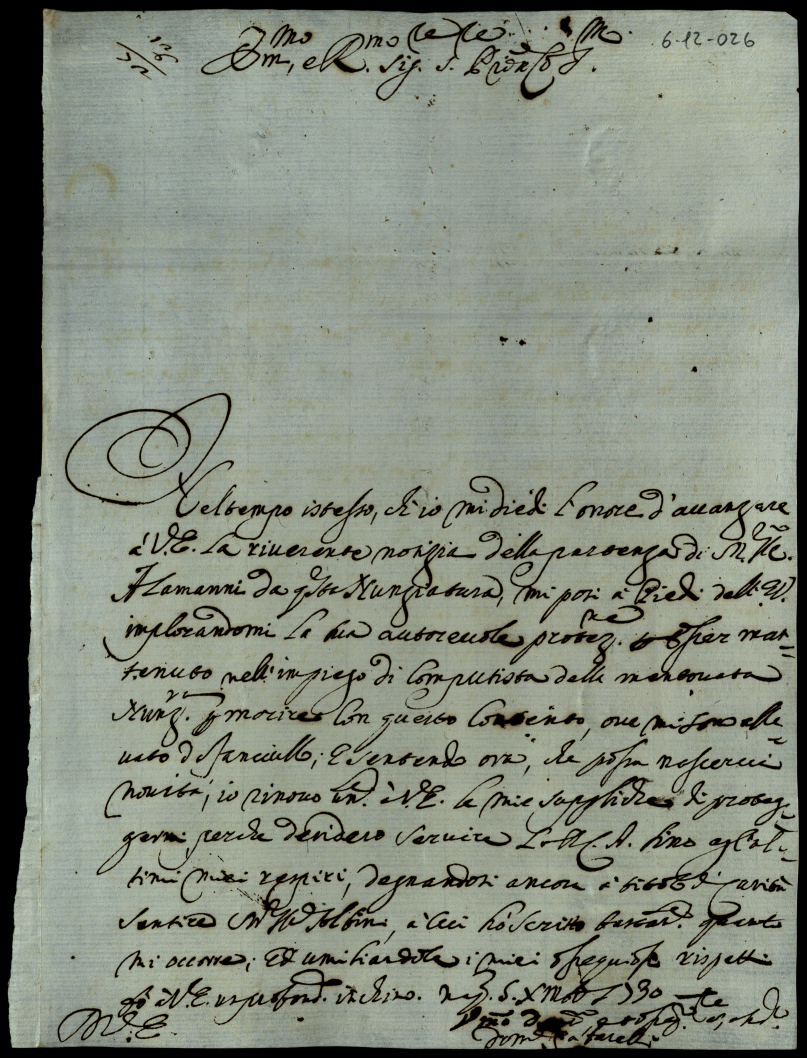 6-12-026
Ill.mo, e R.mo Sig. S.
Nel tempo istesso, ch'io mi diedi l'onore d'auanzare
à V.E. la riuerente notizia della partenza di
Alamanni da q.sta Nunziatura, mi posi à Piedi dell'
implorandomi la sua autoreuole protez.ne esser man=
tenuto nell'impiego di Computista della mentouata
Nunz.ra p morire con questo contento, oue mi son alle=
uato da fanciullo; e sentendo ora, che possa nascerui
nouità, io rinouo à V.E. le mie suppliche di proteg=
germi perche desidero seruire la fino agl'ul=
timi miei respiri, degnandosi ancora à titolo di carità
sentire à cui hò scritto quanto
mi occorre; ed umiliandole i miei ossequiosi rispetti
fò à V.E. un profond. inchino. Nap. 5. Xmbre 1730
D V.E.